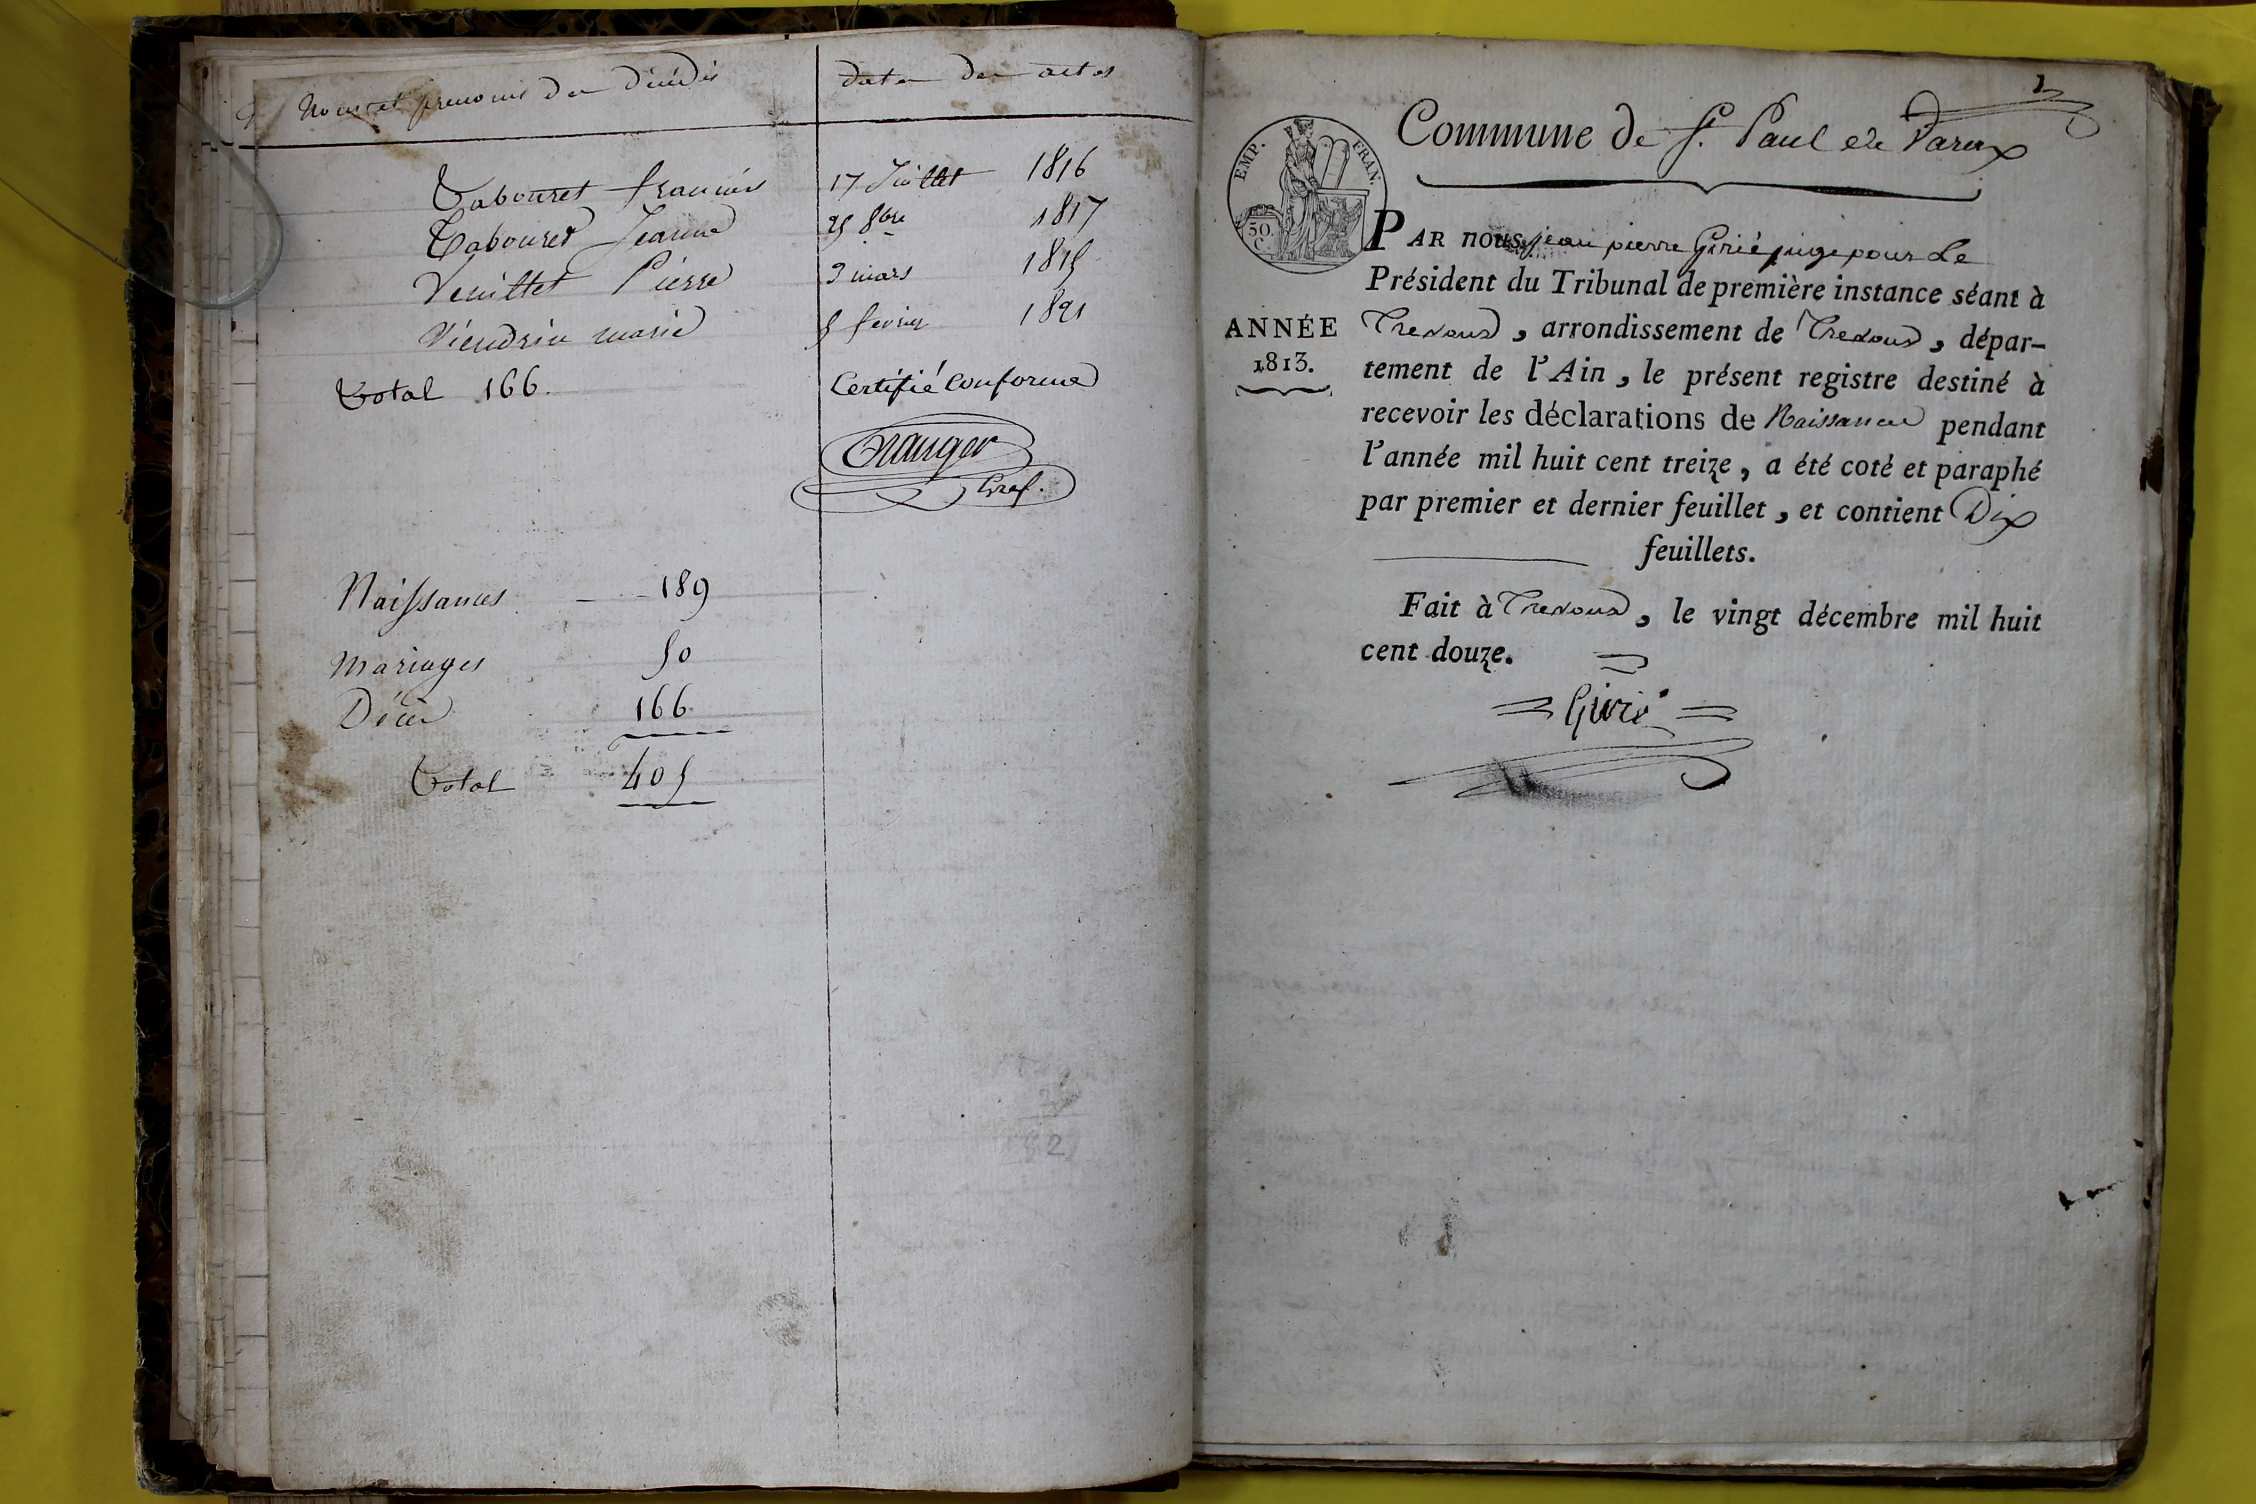 Noms et prenoms des Décédés
date des actes
Tabouret francois 17 Juillet 1816
Tabouret Jeanne 25 8bre 1817
Veuillet Pierre 9 mars 1815
Viendrin marie 5 fevrier 1821
Total 166.
Certifié Conforme
Granger
Gref.
Naissances — 189
Mariages 50
Décès 166
Total 405
1
Commune de St. Paul de Varax
EMP. FRAN.
50. C.
PAR nous, jean pierre Girié juge pour Le
Président du Tribunal de première instance séant à
ANNÉE
1813.
Trevoux, arrondissement de Trevoux, dépar-
tement de l'Ain, le présent registre destiné à
recevoir les déclarations de Naissance pendant
l'année mil huit cent treize, a été coté et paraphé
par premier et dernier feuillet, et contient Dix
feuillets.
Fait à Trevoux, le vingt décembre mil huit
cent douze.
Girié